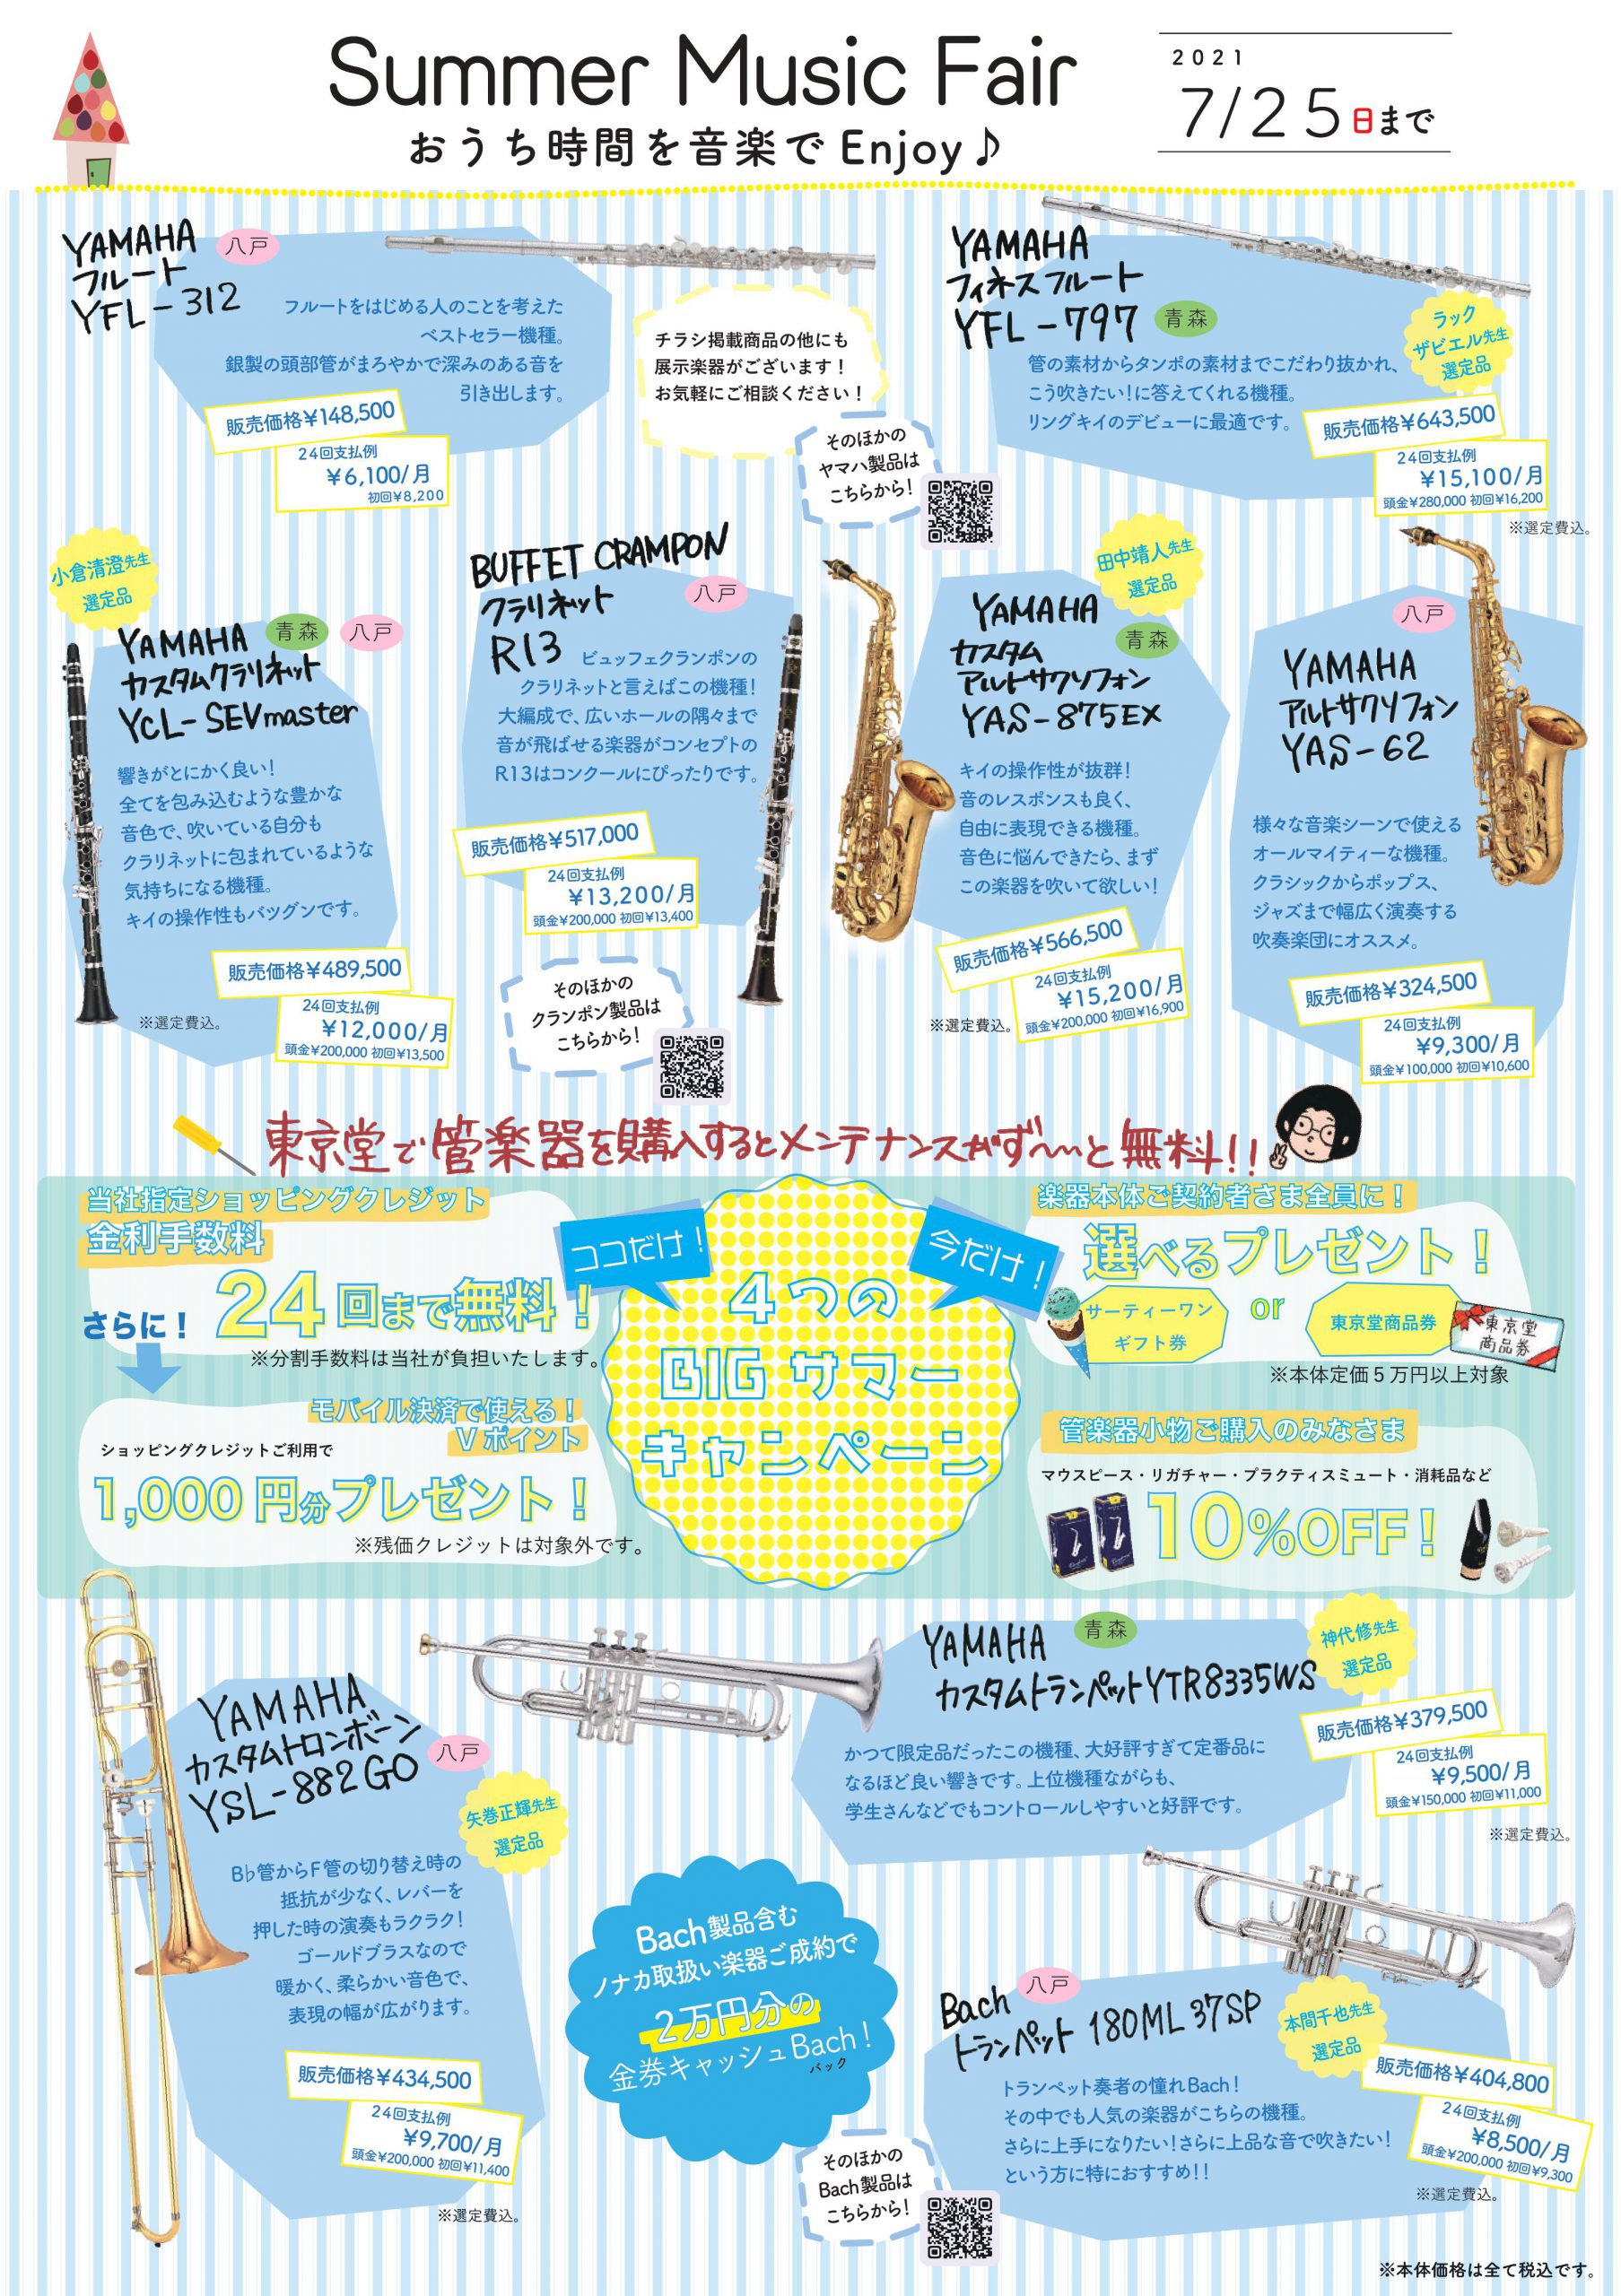 Summer Music Fair
おうち時間を音楽でEnjoy♪
2021
7/25日まで
YAMAHA
フルート
YFL-312
八戸
フルートをはじめる人のことを考えた
ベストセラー機種。
銀製の頭部管がまろやかで深みのある音を
引き出します。
販売価格¥148,500
24回支払例
¥6,100/月
初回¥8,200
チラシ掲載商品の他にも
展示楽器がございます！
お気軽にご相談ください！
そのほかの
ヤマハ製品は
こちらから！
YAMAHA
フィネスフルート
YFL-797
青森
ラック
ザビエル先生
選定品
管の素材からタンポの素材までこだわり抜かれ、
こう吹きたい！に答えてくれる機種。
リングキイのデビューに最適です。
販売価格¥643,500
24回支払例
¥15,100/月
頭金¥280,000 初回¥16,200
※選定費込。
小倉清澄先生
選定品
YAMAHA
カスタムクラリネット
YCL-SEVmaster
青森
八戸
響きがとにかく良い！
全てを包み込むような豊かな
音色で、吹いている自分も
クラリネットに包まれているような
気持ちになる機種。
キイの操作性もバツグンです。
販売価格¥489,500
24回支払例
¥12,000/月
頭金¥200,000 初回¥13,500
※選定費込。
BUFFET CRAMPON
クラリネット
R13
八戸
ビュッフェクランポンの
クラリネットと言えばこの機種！
大編成で、広いホールの隅々まで
音が飛ばせる楽器がコンセプトの
R13はコンクールにぴったりです。
販売価格¥517,000
24回支払例
¥13,200/月
頭金¥200,000 初回¥13,400
そのほかの
クランポン製品は
こちらから！
田中靖人先生
選定品
YAMAHA
カスタム
アルトサクソフォン
YAS-875EX
青森
キイの操作性が抜群！
音のレスポンスも良く、
自由に表現できる機種。
音色に悩んできたら、まず
この楽器を吹いて欲しい！
販売価格¥566,500
24回支払例
¥15,200/月
頭金¥200,000 初回¥16,900
※選定費込。
八戸
YAMAHA
アルトサクソフォン
YAS-62
様々な音楽シーンで使える
オールマイティーな機種。
クラシックからポップス、
ジャズまで幅広く演奏する
吹奏楽団にオススメ。
販売価格¥324,500
24回支払例
¥9,300/月
頭金¥100,000 初回¥10,600
東京堂で管楽器を購入するとメンテナンスがず〜っと無料!!
当社指定ショッピングクレジット
金利手数料
24回まで無料！
※分割手数料は当社が負担いたします。
さらに！
モバイル決済で使える！
Vポイント
ショッピングクレジットご利用で
1,000円分プレゼント！
※残価クレジットは対象外です。
ココだけ！
今だけ！
4つの
BIGサマー
キャンペーン
楽器本体ご契約者さま全員に！
選べるプレゼント！
サーティーワン
ギフト券
or
東京堂商品券
東京堂
商品券
※本体定価5万円以上対象
管楽器小物ご購入のみなさま
マウスピース・リガチャー・プラクティスミュート・消耗品など
10%OFF！
YAMAHA
カスタムトロンボーン
YSL-882GO
八戸
矢巻正輝先生
選定品
B♭管からF管の切り替え時の
抵抗が少なく、レバーを
押した時の演奏もラクラク！
ゴールドブラスなので
暖かく、柔らかい音色で、
表現の幅が広がります。
販売価格¥434,500
24回支払例
¥9,700/月
頭金¥200,000 初回¥11,400
※選定費込。
YAMAHA
カスタムトランペットYTR8335WS
青森
神代修先生
選定品
かつて限定品だったこの機種、大好評すぎて定番品に
なるほど良い響きです。上位機種ながらも、
学生さんなどでもコントロールしやすいと好評です。
販売価格¥379,500
24回支払例
¥9,500/月
頭金¥150,000 初回¥11,000
※選定費込。
Bach製品含む
ノナカ取扱い楽器ご成約で
2万円分の
金券キャッシュBach！
バック
そのほかの
Bach製品は
こちらから！
Bach
トランペット 180ML37SP
八戸
本間千也先生
選定品
トランペット奏者の憧れBach！
その中でも人気の楽器がこちらの機種。
さらに上手になりたい！さらに上品な音で吹きたい！
という方に特におすすめ!!
販売価格¥404,800
24回支払例
¥8,500/月
頭金¥200,000 初回¥9,300
※選定費込。
※本体価格は全て税込です。